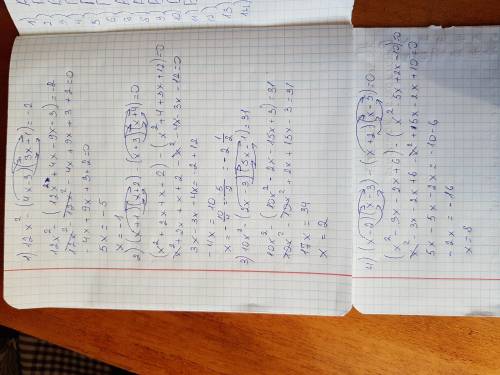 1) 12x² - (4x-3)(3x+1) = -2
12x² - (12x² + 4x - 9x - 3) = -2
12x² - 12x² - 4x + 9x + 3 + 2 = 0
-4x + 9x + 3 + 2 = 0
5x = -5
x = -1
2) (x+1)(x+2) - (x+3)(x+4) = 0
(x² + 2x + x + 2) - (x² + 4 + 3x + 12) = 0
x² + 2x + x + 2 - x² - 4x - 3x - 12 = 0
3x - 3x - 4x = -2 + 12
-4x = 10
x = -10/4 = -5/2 = -2 1/2
3) 10x² - (2x-3)(5x-1) = 31
10x² - (10x² - 2x - 15x + 3) = 31
10x² - 10x² + 2x + 15x - 3 = 31
17x = 34
x = 2
4) (x-2)(x-3) - (x+2)(x-5) = 0
(x² - 3x - 2x + 6) - (x² - 5x + 2x - 10) = 0
x² - 3x - 2x + 6 - x² + 5x - 2x + 10 = 0
5x - 5x - 2x = -10 - 6
-2x = -16
x = 8